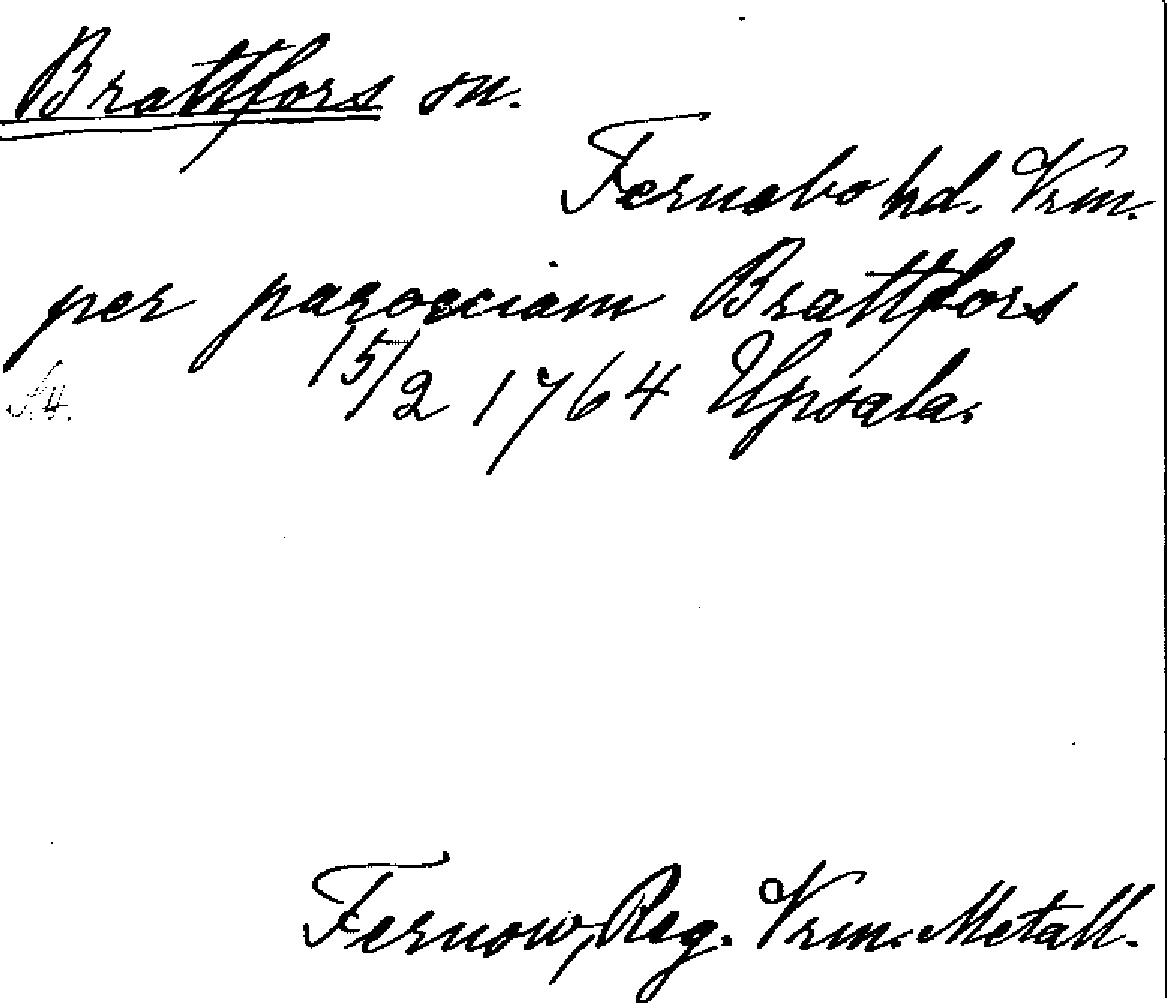 Brattfors sn.
Fernebo hd. Vrm.
per parocciam Brattfors
15/2 1764 Upsala.
Fernow, Reg. Vrm. Metall.